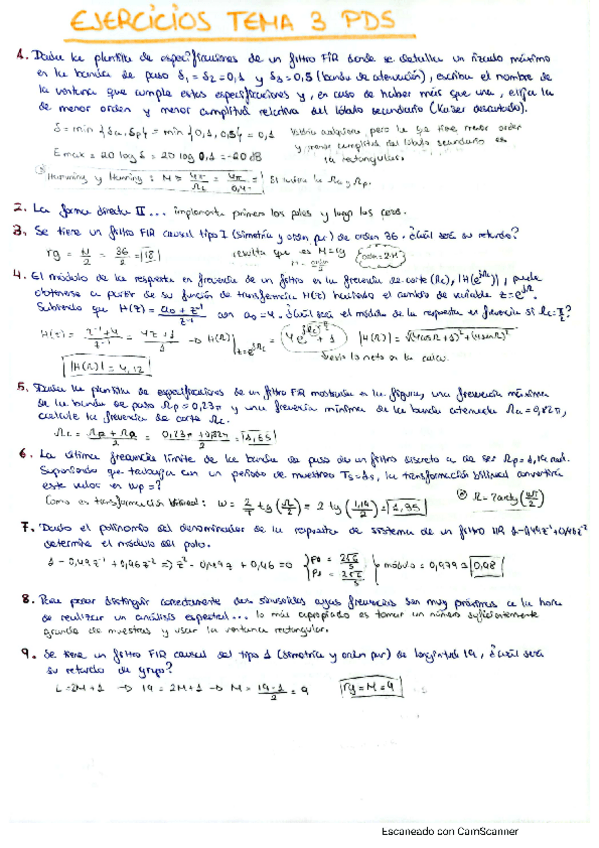 EJERCICIOS TEMA 3 PDS
1. Dada la plantilla de especificaciones de un filtro FIR donde se detalla un rizado máximo
en la banda de paso δ1 = δ2 = 0,1 y δ3 = 0,5 (banda de atenuación), escriba el nombre de
la ventana que cumpla estas especificaciones y, en caso de haber más que una, elija la
de menor orden y menor amplitud relativa del lóbulo secundario (Kaiser descartado).
δ = min {δa, δp} = min {0,1, 0,5} = 0,1 pero la que tiene menor orden
y menor amplitud del lóbulo secundario es
Emax = 20 log δ = 20 log 0,1 = -20 dB la rectangular.
Hamming y Hanning: M ≥
2. La forma directa II... implementa primero los polos y luego los ceros.
3. Se tiene un filtro FIR causal tipo I (simetría y orden par) de orden 36. ¿Cuál será su retardo?
rg = N/2 = 36/2 = 18 resulta que es M = rg
4. El módulo de la respuesta en frecuencia de un filtro en la frecuencia de corte (Ωc), |H(e^jΩc)|, puede
obtenerse a partir de su función de transferencia H(z) haciendo el cambio de variable z = e^jΩ.
Sabiendo que H(z) = a0 + z^-1 / z^-1 con a0 = 4. ¿Cuál será el módulo de la respuesta en frecuencia si Ωc = π/2?
H(z) = z^-1 + 4 / z^-1 = 4z + 1 / 1 → H(Ω)|z = e^jΩc = 4e^jΩc + 1 |H(Ω)| = √(4cosΩ + 1)² + (4senΩ)²
|H(Ω)| = 4,12
5. Dada la plantilla de especificaciones de un filtro FIR mostrada en la figura, una frecuencia máxima
de la banda de paso Ωp = 0,23π y una frecuencia mínima de la banda atenuada Ωa = 0,82π,
calcule la frecuencia de corte Ωc.
Ωc = Ωp + Ωa / 2 = 0,23π + 0,82π / 2 = 1,65
6. La última frecuencia límite de la banda de paso de un filtro discreto a de ser Ωp = 1,19 rad.
Suponiendo que trabaja con un periodo de muestreo Ts = 1s, la transformación bilineal convertirá
este valor en wp = ?
Como es transformación bilineal: w = 2/T tg (Ω/2) = 2 tg (1,19/2) = 1,35
7. Dado el polinomio del denominador de la respuesta de sistema de un filtro IIR 1 - 0,49z^-1 + 0,96z^-2
determine el módulo del polo.
1 - 0,49z^-1 + 0,96z^-2 => z² - 0,49z + 0,96 = 0 módulo = 0,979 ≈ 0,98
8. Para poder distinguir correctamente dos sinusoides cuyas frecuencias son muy próximas a la hora
de realizar un análisis espectral... lo más apropiado es tomar un número suficientemente
grande de muestras y usar la ventana rectangular.
9. Se tiene un filtro FIR causal del tipo 1 (simetría y orden par) de longitud 19, ¿cuál será
su retardo de grupo?
L = 2M + 1 → 19 = 2M + 1 → M = 19 - 1 / 2 = 9 rg = M = 9
Escaneado con CamScanner